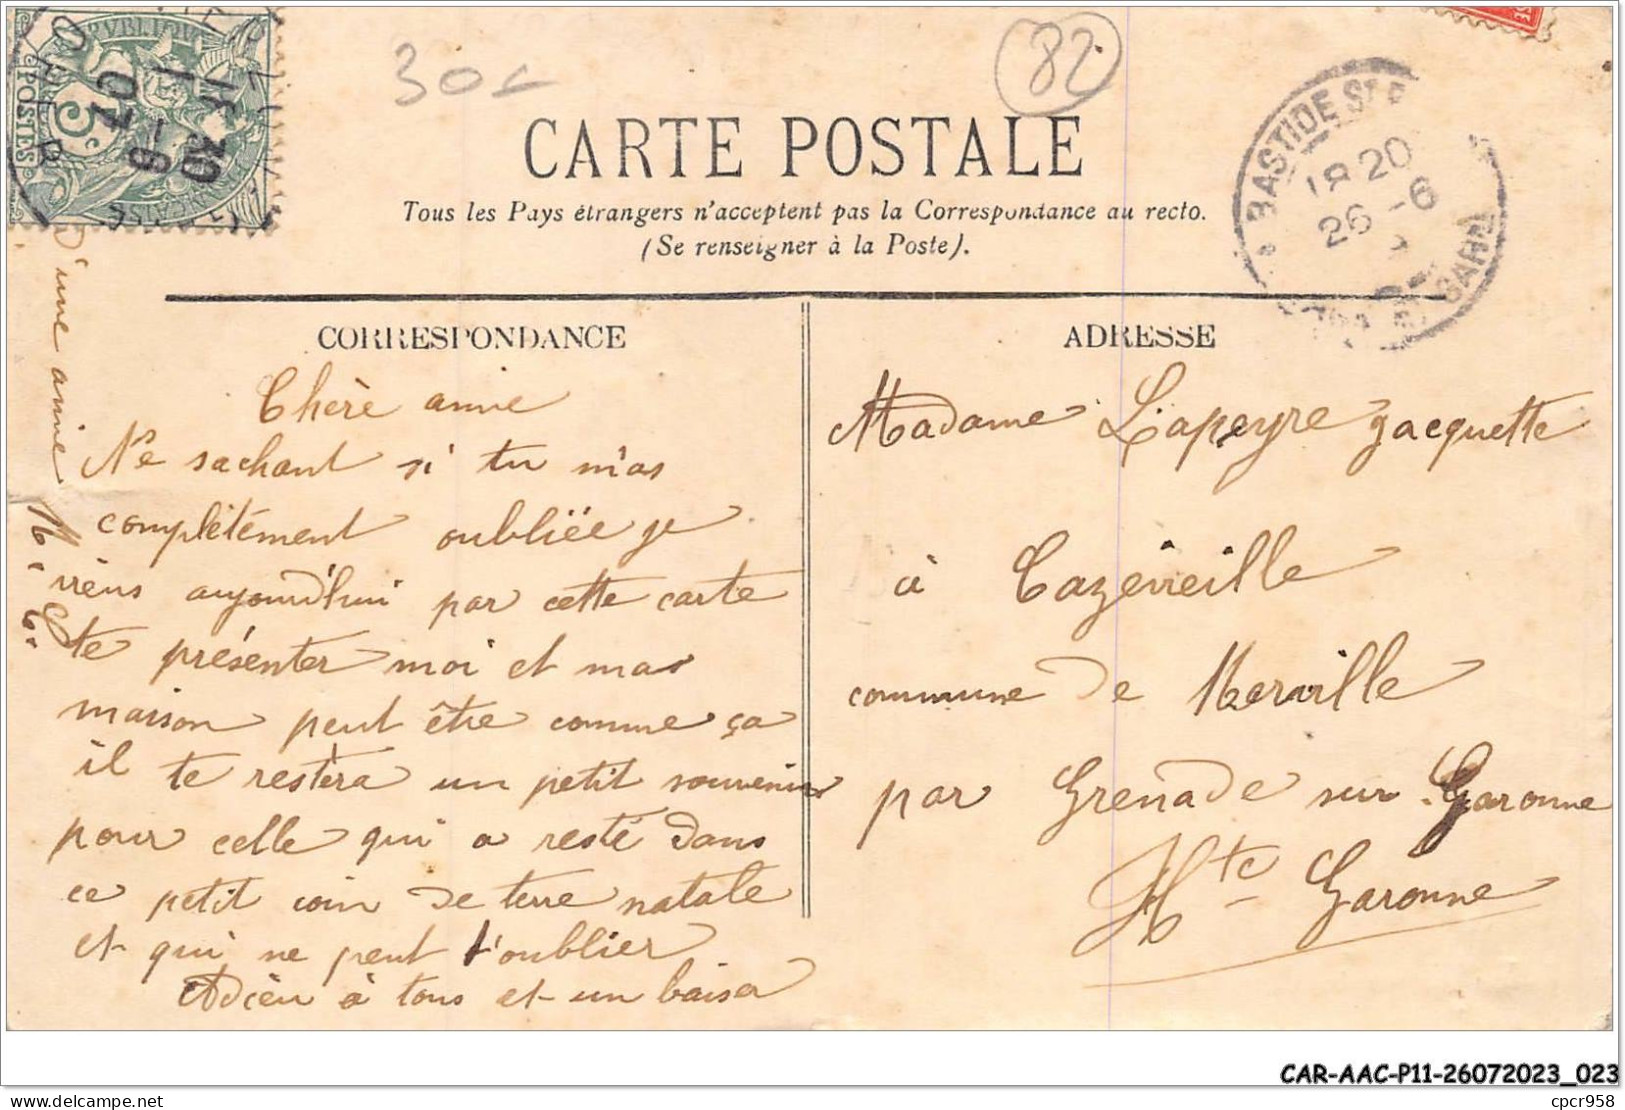 30c
82
CARTE POSTALE
Tous les Pays étrangers n'acceptent pas la Correspondance au recto.
(Se renseigner à la Poste).
BASTIDE ST P
18 20
26 -6
GARNE
POSTES
5c
CORRESPONDANCE
Chère amie
Ne sachant si tu m'as
complètement oubliée je
viens aujourd'hui par cette carte
te présenter moi et mas
maison peut être comme ça
il te restera un petit souvenir
pour celle qui a resté dans
ce petit coin de terre natale
et qui ne peut t'oublier
Adieu à tous et un baiser
D'une amie
ADRESSE
Madame Lapeyre Jacquette
à Cazevieille
commune de Merville
par Grenade sur Garonne
Hte Garonne
CAR-AAC-P11-26072023_023
cpcr958